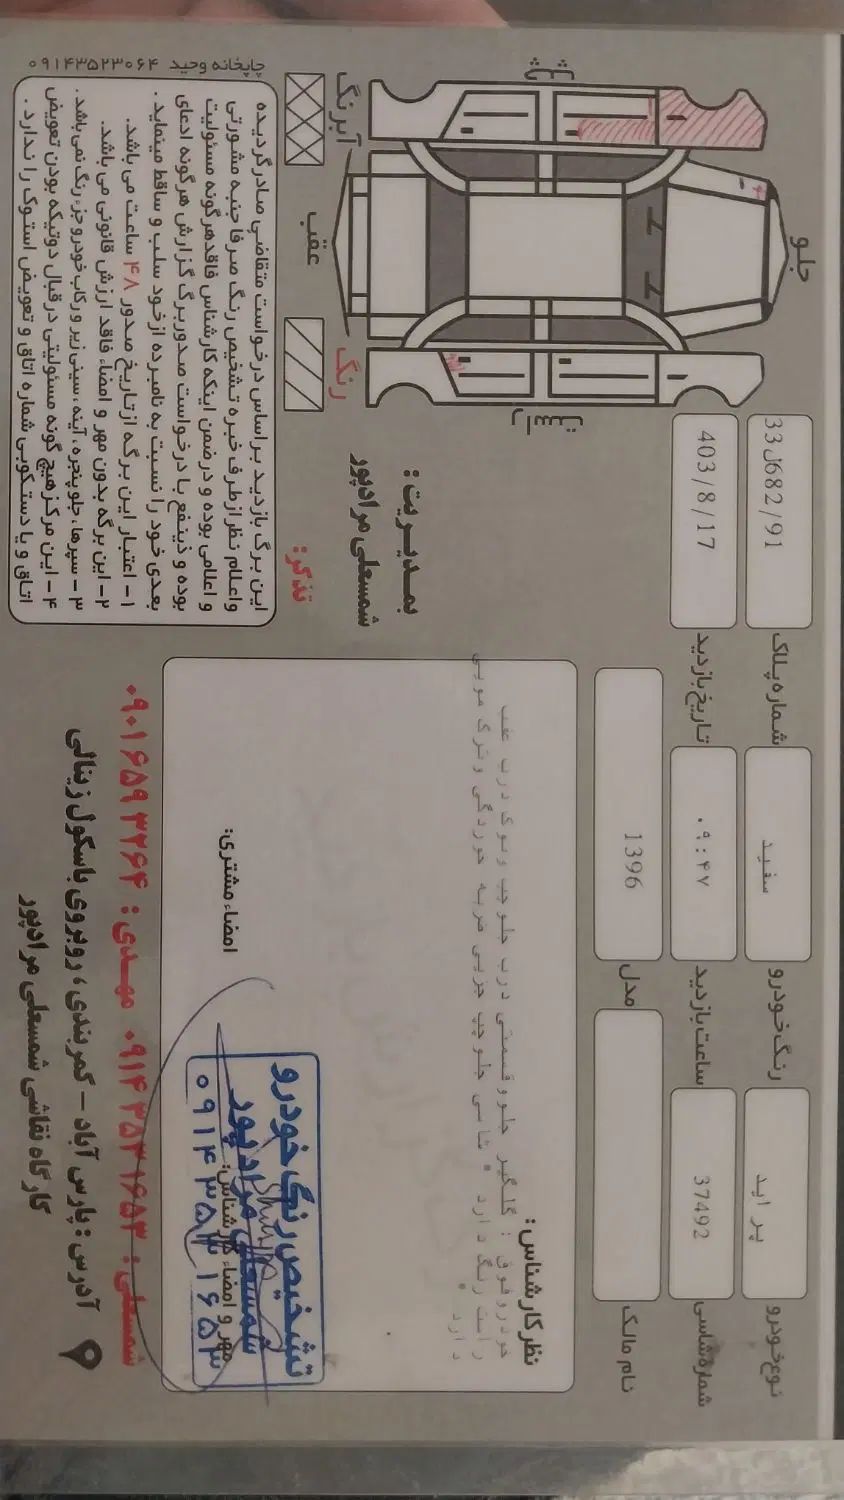 نوع خودرو پراید رنگ خودرو سفید شماره پلاک 33ل682/91
شماره شاسی 37492 ساعت بازدید ۰۹:۴۷ تاریخ بازدید 403/8/17
نام مالک مدل 1396
جلو
عقب
چپ
راست
آبرنگ
رنگ
نظر کارشناس:
خودرو فوق : گلگیر جلو و قسمتی درب جلو چپ و نوک درب عقب
راست رنگ دارد . شاسی جلو چپ جزیی ضربه خوردگی و ترک مویی
دارد .
امضاء مشتری:
مهر و امضاء کارشناس:
تشخیص رنگ خودرو
شمسعلی مرادپور
۰۹۱۴۳۵۳۱۶۵۳
بمدیریت:
شمسعلی مرادپور
تذکر:
این برگ بازدید بر اساس درخواست متقاضی صادر گردیده
و اعلام نظر از طرف خبره تشخیص رنگ صرفا جنبه مشورتی
و اعلامی بوده و در ضمن اینکه کارشناس فاقد هرگونه مسئولیت
بوده و ذینفع با درخواست صدور برگ گزارش هرگونه ادعای
بعدی خود را نسبت به نامبرده از خود سلب و ساقط مینماید .
۱- اعتبار این برگه از تاریخ صدور ۴۸ ساعت می باشد.
۲- این برگه بدون مهر و امضاء فاقد ارزش قانونی می باشد.
۳- سپرها، جلو پنجره، آینه، سینی زیر و رکاب خودرو جزء رنگ نمی باشد.
۴- این مرکز هیچ گونه مسئولیتی در قبال دوتیکه بودن تعویض
اتاق و یا دستکوبی شماره اتاق و تعویض استوک را ندارد.
چاپخانه وحید ۰۹۱۴۳۵۲۳۰۶۴
شمسعلی: ۰۹۱۴۳۵۳۱۶۵۳ مهدی: ۰۹۰۱۶۵۹۳۲۶۴
آدرس: پارس آباد - کمربندی، روبروی باسکول زینالی
کارگاه نقاشی شمسعلی مرادپور